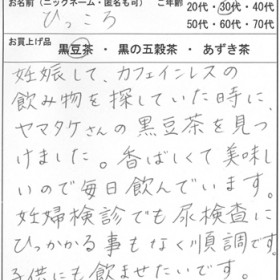 お名前(ニックネーム・匿名も可) ご年齢
ぴっころ
20代・30代・40代
50代・60代・70代
お買上げ品
黒豆茶 ・ 黒の五穀茶 ・ あずき茶
妊娠して、カフェインレスの
飲み物を探していた時に、
ヤマタケさんの黒豆茶を見つ
けました。香ばしくて美味し
いので毎日飲んでいます。
妊婦検診でも尿検査に
ひっかかる事もなく順調です
子供にも飲ませたいです。